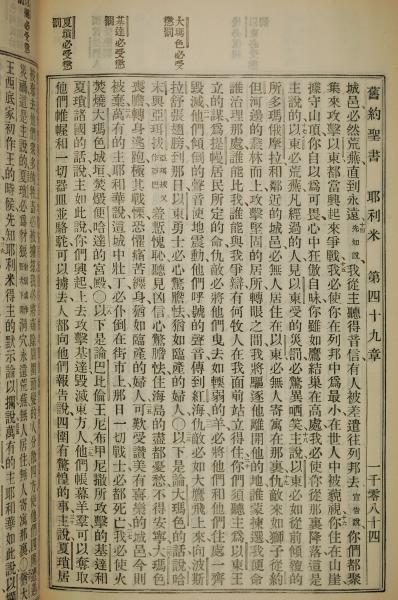 舊約聖書 耶利米 第四十九章 一千零八十四
城邑必然荒蕪直到永遠我從主聽得音信有人被差遣往列邦去你們都聚
集來攻擊以東都當興起來爭戰我必使你在列邦中為最小在世人中被藐視你住在山崖
據守山頂你自以為可畏心中狂傲自昧你雖如鷹結巢在高處我必使你從那裏降落這是
主說的以東必荒蕪凡經過的人見以東受的災罰必驚異嗤笑主說以東必如從前傾覆的
所多瑪俄摩拉和鄰近的城邑必無人居住在以東必無人寄寓在那裏仇敵來如獅子從約
但河邊的叢林而上攻擊堅固的居所轉眼之間我將驅逐他離開他的地誰蒙揀選我便命
誰治理那處誰能比我誰能與我爭辯有何牧人在我面前站立得住你們須聽主為以東王
立的謀為提幔居民所定的命仇敵必將他們曳去如輭弱的羊必將他們和他們住處一齊
毀滅他們傾倒的聲音使地震動他們呼號的聲音傳到紅海仇敵必如大鷹飛上來向波斯
大瑪色必受懲罰
拉舒張翅膀到那日以東勇士必心驚膽怯猶如臨產的婦人〇以下是論大瑪色的話說哈
末與亞珥拔羞慙愧恥聽見凶信心驚膽怯住海島的盡都憂愁不得安寧大瑪色
喪膽轉身逃跑極其戰慄恐懼痛苦纏身猶如臨產的婦人可歎受讚美有喜樂的城邑今則
被棄萬有的主耶和華說這城中壯丁必仆倒在街市上那日一切戰士必都死亡我必使火
基達必受懲罰
焚燒大瑪色城垣焚燬便哈達的宮殿〇以下是論巴比倫王尼布甲尼撒所攻擊的基達和
夏瑣諸國的話說主如此說你們興起上去攻擊基達毀滅東方人他們帳幕羊羣可以奪取
夏瑣必受懲罰
他們帷幄和一切器皿並駱駝可以擄去人都向他們報告說四圍有驚惶的事主說夏瑣居
王西底家初作王的時候先知耶利米得主的默示論以攔說萬有的主耶和華如此說